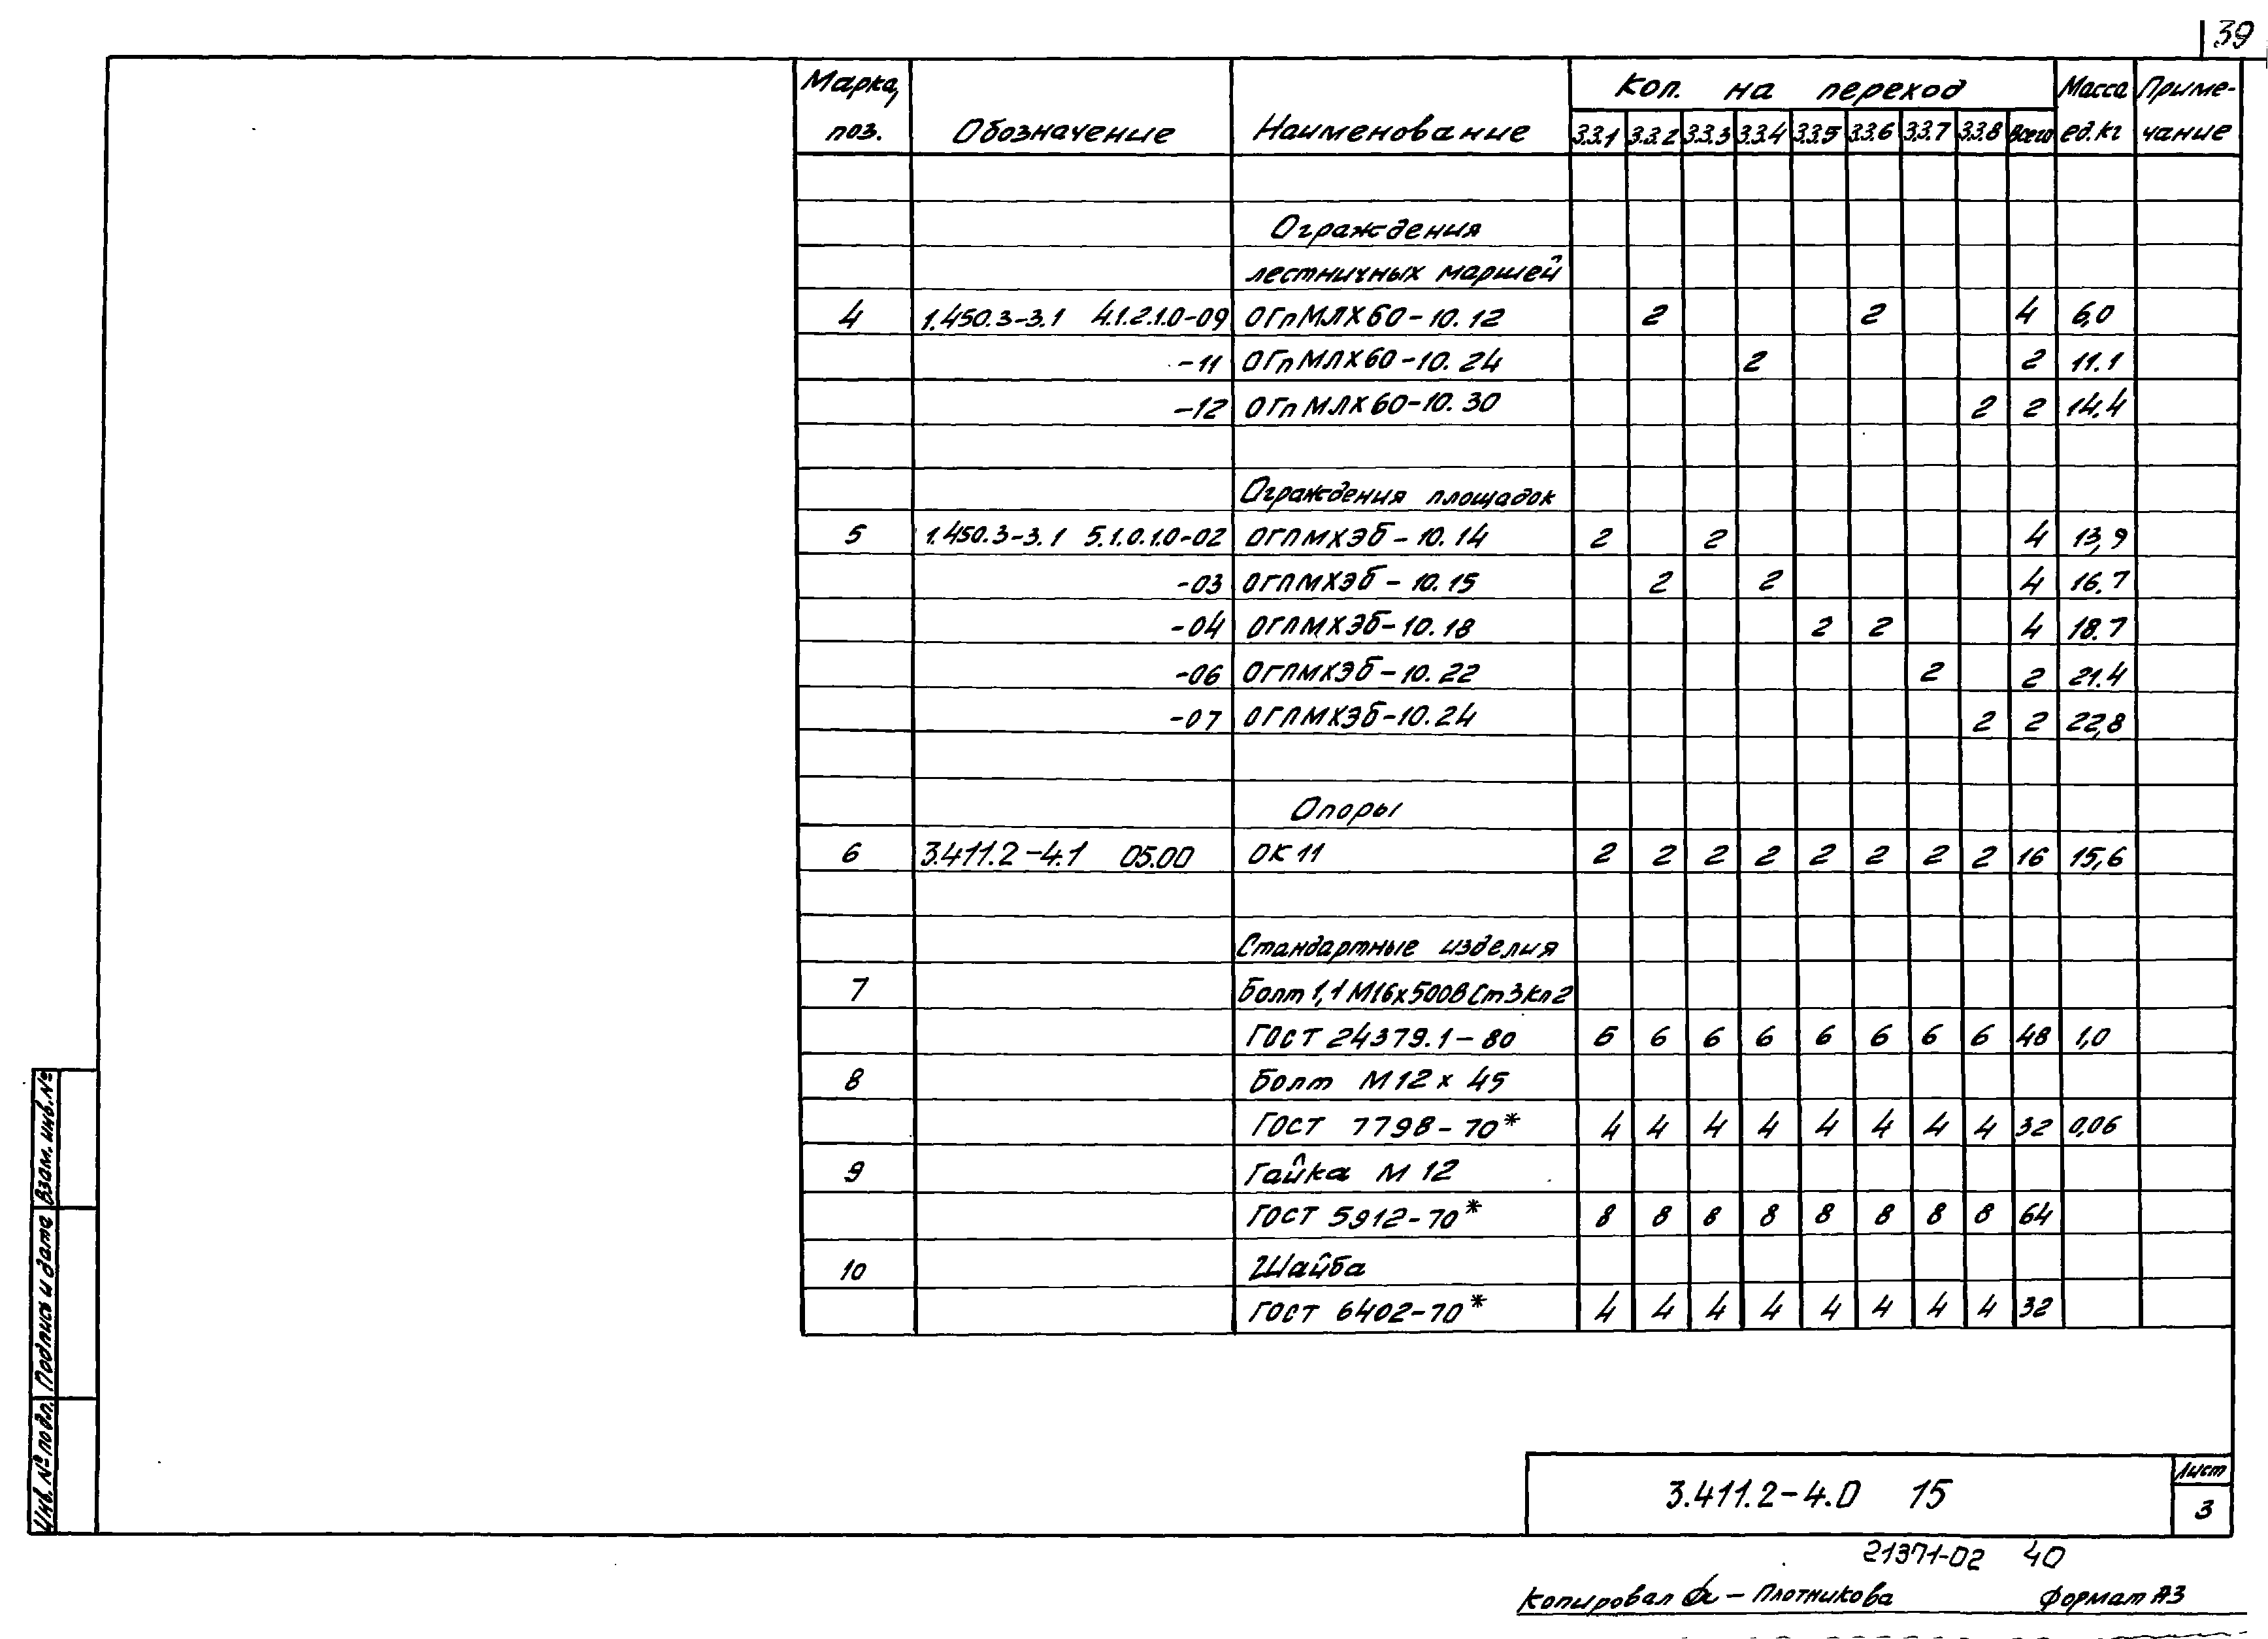 39
Марка, поз. Обозначение Наименование Кол. на переход Масса ед. кг Приме- чание
3.3.1 3.3.2 3.3.3 3.3.4 3.3.5 3.3.6 3.3.7 3.3.8 Всего
Ограждения
лестничных маршей
4 1.450.3-3.1 4.1.2.1.0-09 ОГпМЛХ60-10.12 2 2 4 6,0
-11 ОГпМЛХ60-10.24 2 2 11.1
-12 ОГпМЛХ60-10.30 2 2 14.4
Ограждения площадок
5 1.450.3-3.1 5.1.0.1.0-02 ОГПМХЭБ-10.14 2 2 4 13,9
-03 ОГПМХЭБ-10.15 2 2 4 16.7
-04 ОГПМХЭБ-10.18 2 2 4 18.7
-06 ОГПМХЭБ-10.22 2 2 21.4
-07 ОГПМХЭБ-10.24 2 2 22,8
Опоры
6 3.411.2-4.1 05.00 ОК11 2 2 2 2 2 2 2 2 16 15,6
Стандартные изделия
7 Болт 1,1 М16х500ВСт3кп2
ГОСТ 24379.1-80 6 6 6 6 6 6 6 6 48 1,0
8 Болт М12х45
ГОСТ 7798-70* 4 4 4 4 4 4 4 4 32 0,06
9 Гайка М12
ГОСТ 5912-70* 8 8 8 8 8 8 8 8 64
10 Шайба
ГОСТ 6402-70* 4 4 4 4 4 4 4 4 32
Инв. № подл. Подпись и дата Взам. инв. №
3.411.2-4.0 15
Лист
3
21371-02 40
Копировал - Плотникова Формат А3